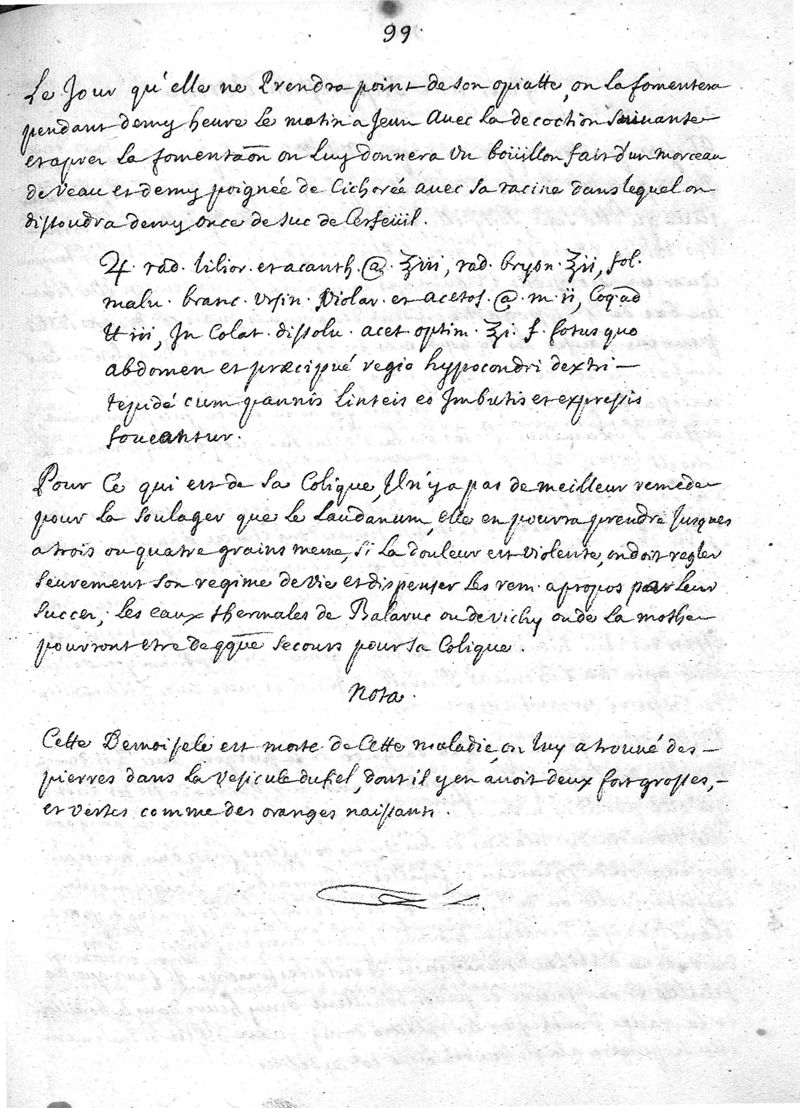 99
Le Jour qu'elle ne Prendra point de son opiatte, on la fomentera
pendant demy heure le matin a Jeun Avec la decoction Suivante
et apres la fomentaõn on Luy donnera Un boüillon fait d'un morceau
de Veau et demy poignée de Cichorée avec sa racine dans lequel on
dissoudra demy once de suc de Cerfeüil.
♃. rad. lilior. et acanth. @. ℥iii, rad. bryon. ℥ii, fol.
malu. branc. Ursin. Violar. et acetos. @. m. ii, Coq. ad
℔ iii, In Colat. dissolu. acet optim. ℥i. f. fotus quo
abdomen et præcipué regio hypocondri dextri –
tepidé cum pannis linteis eo Imbutis et expressis
foueantur.
Pour Ce qui est de Sa Colique, Il n'y a pas de meilleur remede
pour la soulager que le Laudanum, elle en pourra prendre Jusques
a trois ou quatre grains meme, Si La douleur est violente, on doit regler
seurement son regime de vie et dispenser les rem. apropos par leur
succez, les eaux thermales de Balaruc ou de Vichy ou de la mothe
pourront etre de qqũe secours pour sa Colique.
Nota.
Cette Demoisele est morte de Cette maladie, on luy a trouué des –
pierres dans la Vesicule du fiel, dont il y en auoit deux fort grosses, –
et vertes comme des oranges naissants.